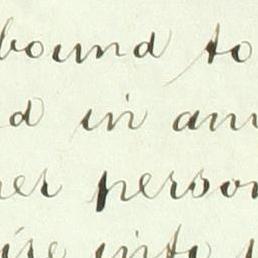 bound to
d in an
er person
ise into